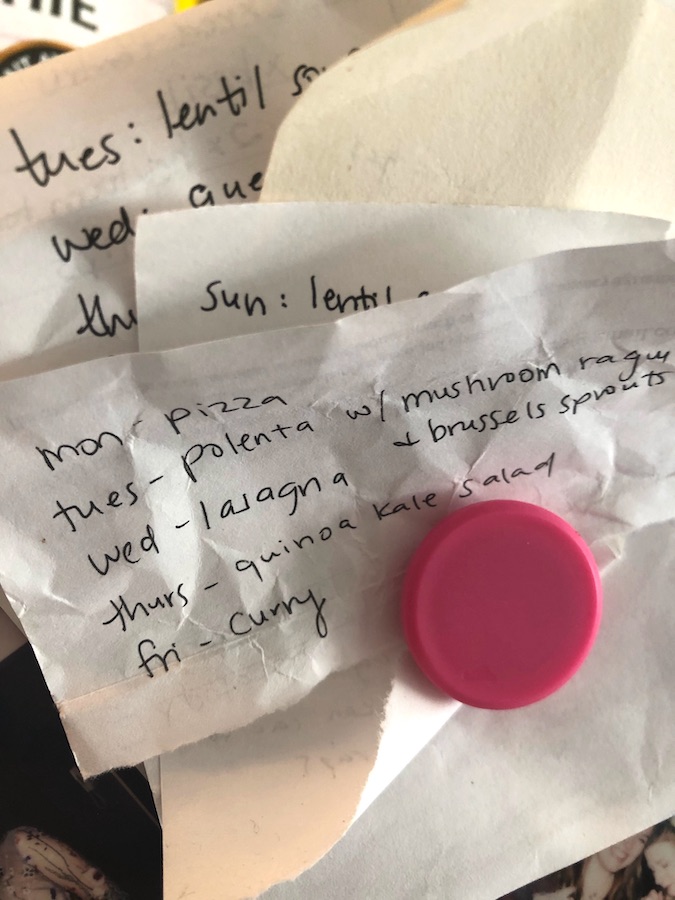 tues: lentil
wed:
sun: lentil
mon - pizza
tues - polenta w/ mushroom ragu
& brussels sprouts
wed - lasagna
thurs - quinoa kale salad
fri - curry